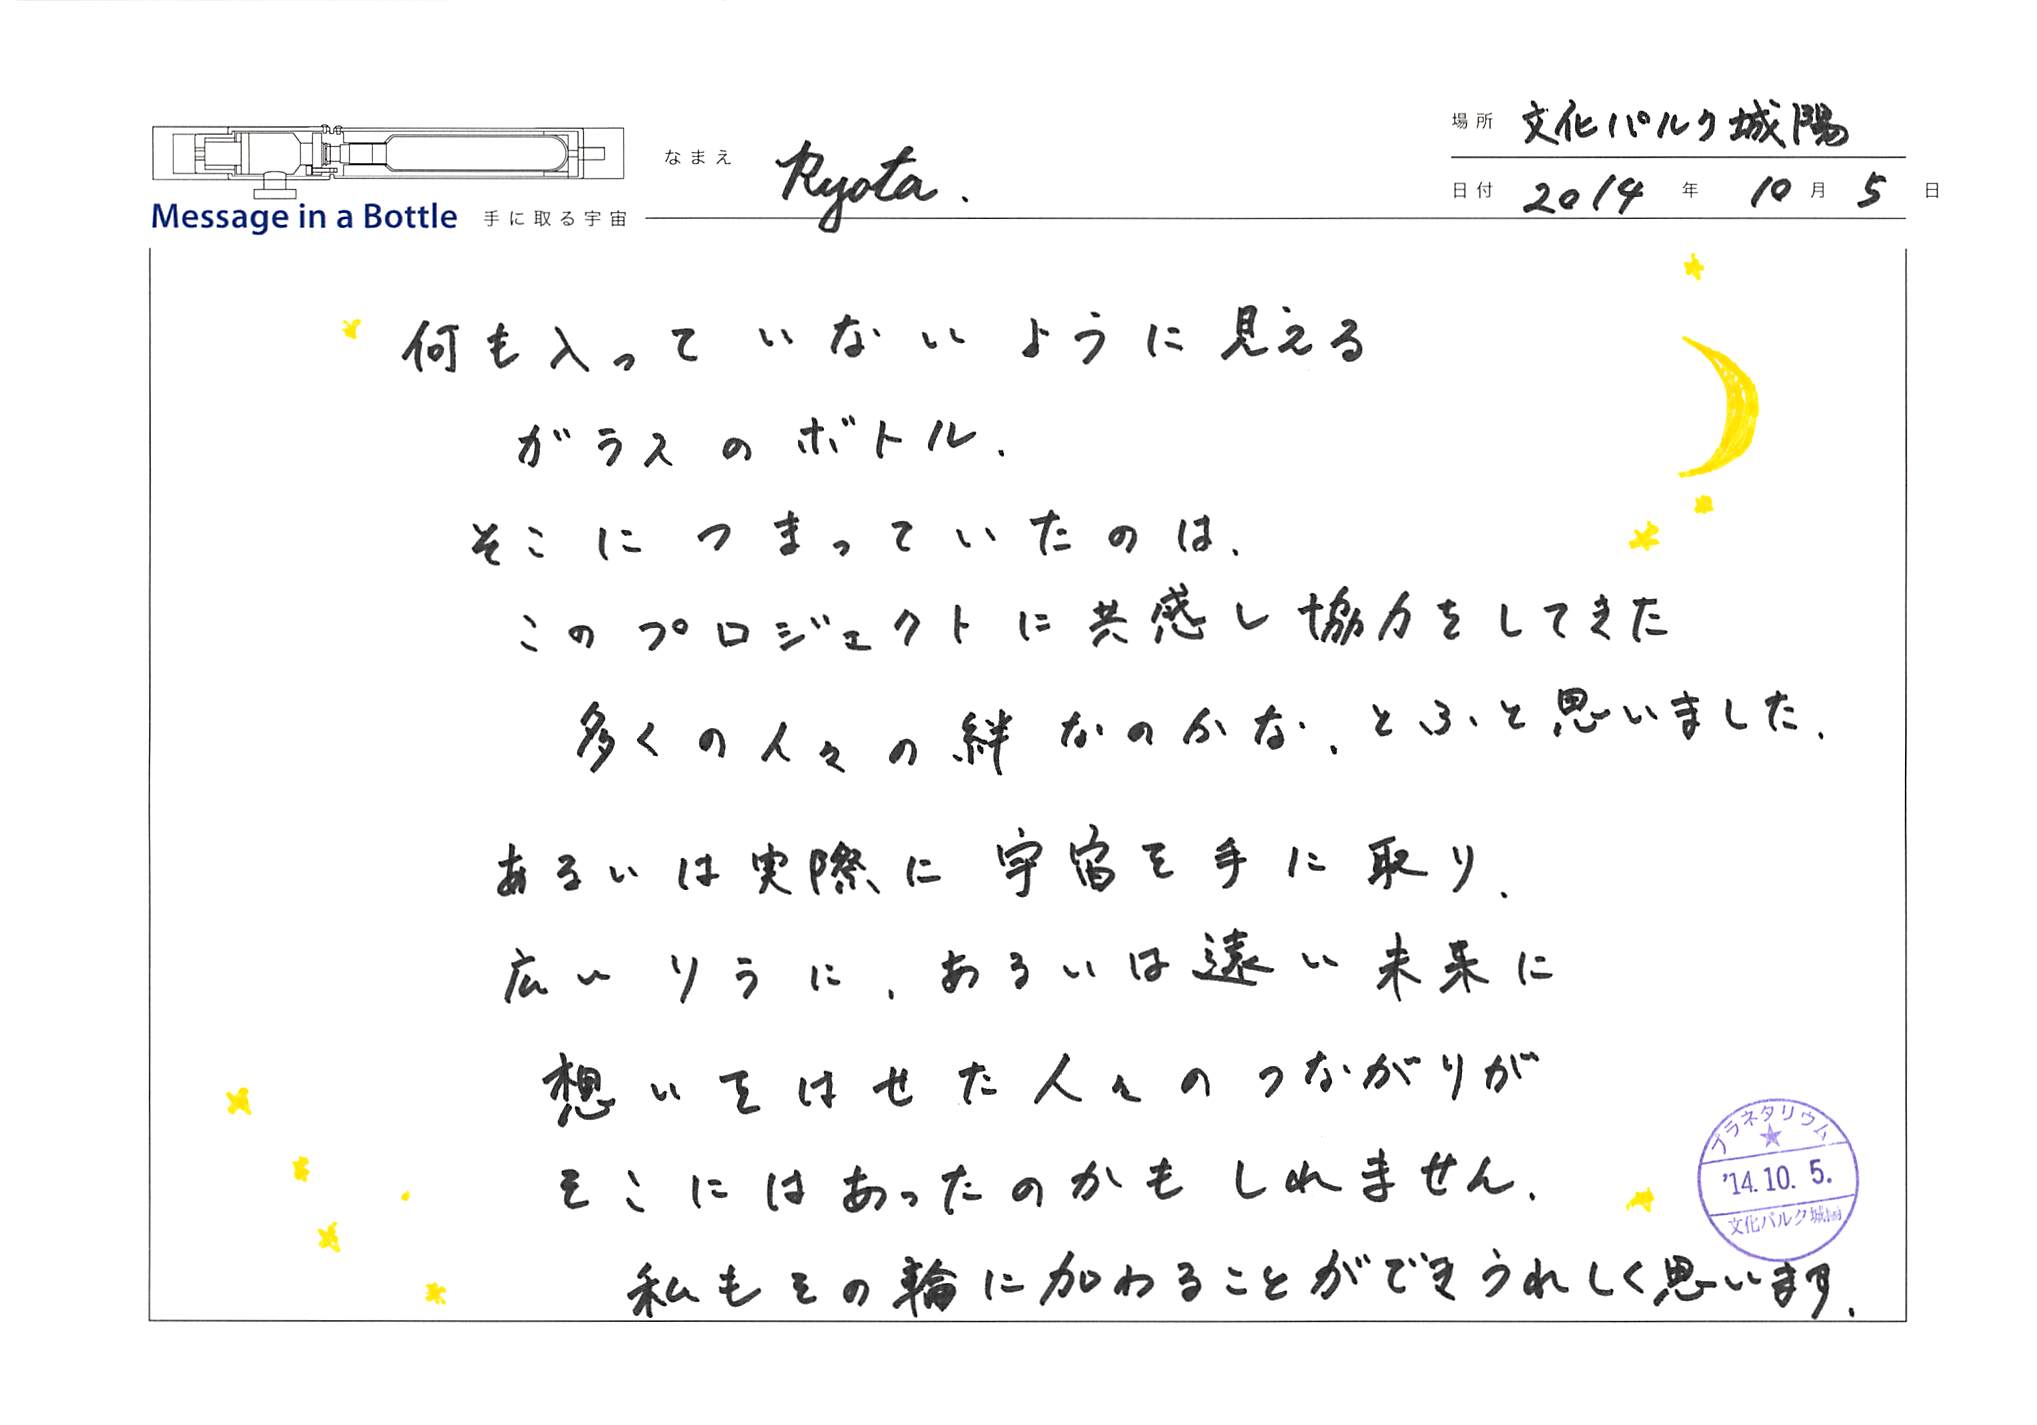 場所 文化パルク城陽
なまえ Ryota.
日付 2014 年 10 月 5 日
Message in a Bottle 手に取る宇宙
何も入っていないように見える
ガラスのボトル.
そこにつまっていたのは、
このプロジェクトに共感し協力をしてきた
多くの人々の絆なのかな、とふと思いました.
あるいは実際に宇宙を手に取り、
広いりうに、あるいは遠い未来に
想いをはせた人々のつながりが
そこにはあったのかもしれません.
私もその輪に加わることができうれしく思います.
プラネタリウム
'14.10.5.
文化パルク城陽